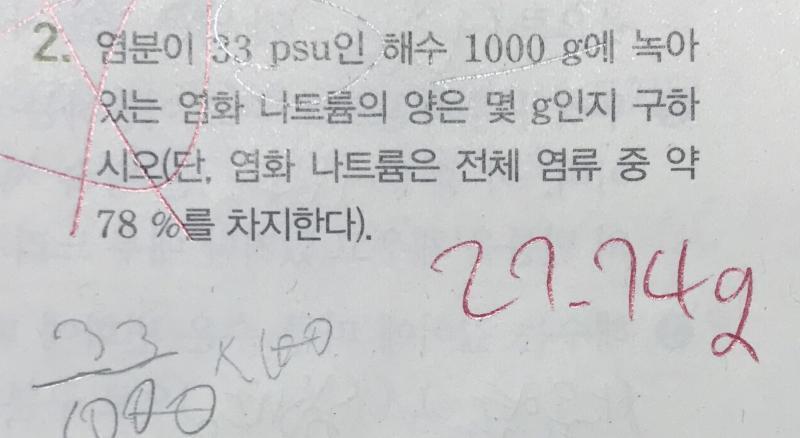 2. 염분이 33 psu인 해수 1000 g에 녹아
있는 염화 나트륨의 양은 몇 g인지 구하
시오(단, 염화 나트륨은 전체 염류 중 약
78 %를 차지한다).
27.74g
33
× 100
1000